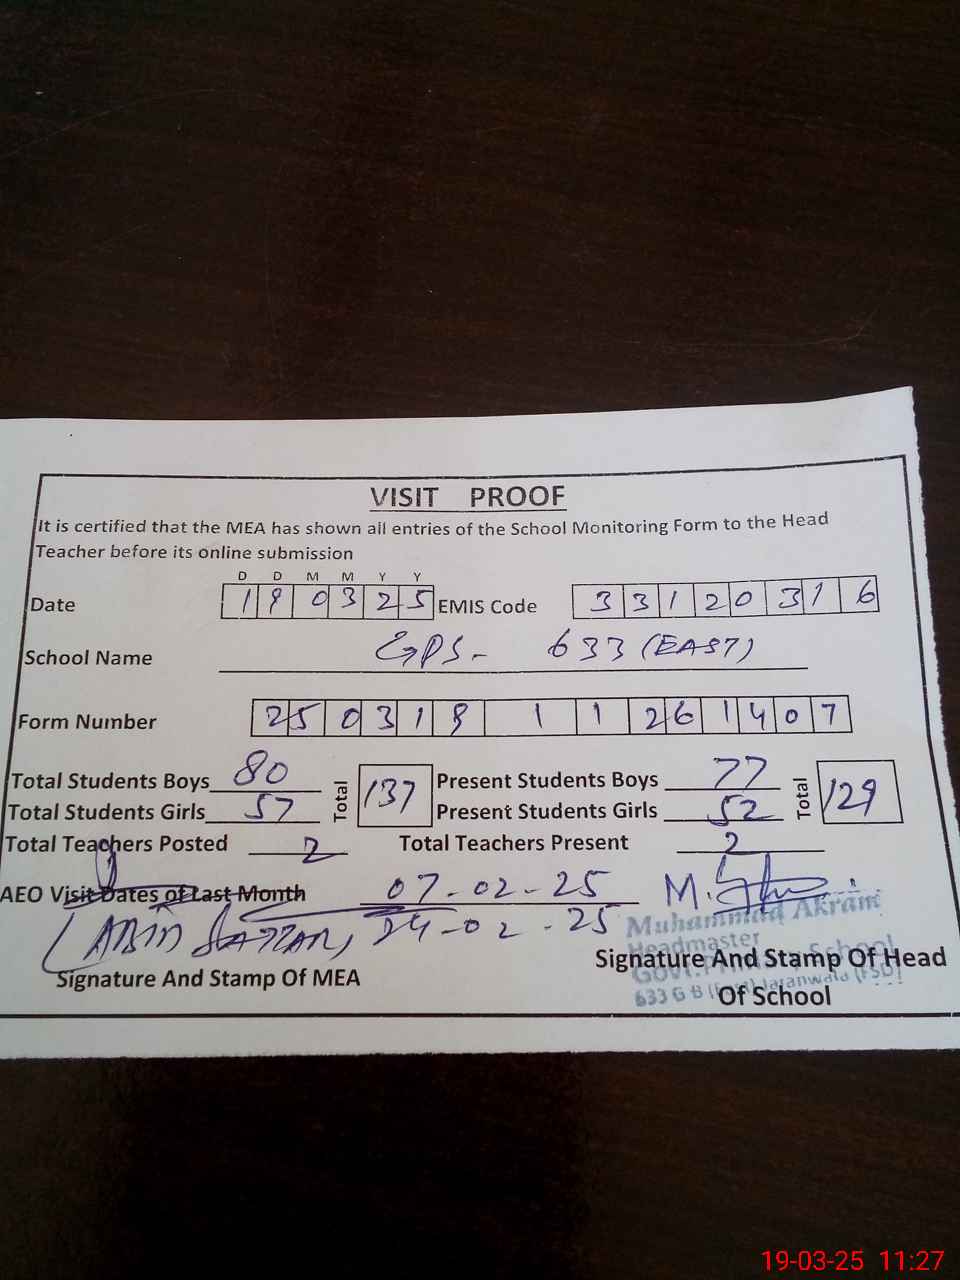 VISIT PROOF
It is certified that the MEA has shown all entries of the School Monitoring Form to the Head
Teacher before its online submission
D D M M Y Y
Date 1 9 0 3 2 5 EMIS Code 3 3 1 2 0 3 1 6
School Name GPS - 633 (EAST)
Form Number 2 5 0 3 1 9 1 1 2 6 1 4 0 7
Total Students Boys 80 Total 137 Present Students Boys 77 Total 129
Total Students Girls 57 Present Students Girls 52
Total Teachers Posted 2 Total Teachers Present 2
AEO Visit Dates of Last Month 07-02-25
(ABID SATTAR) 24-02-25
Muhammad Akram
Headmaster
Govt. Primary School
633 G B (East) Jaranwala (FSD)
Signature And Stamp Of MEA
Signature And Stamp Of Head
Of School
19-03-25 11:27